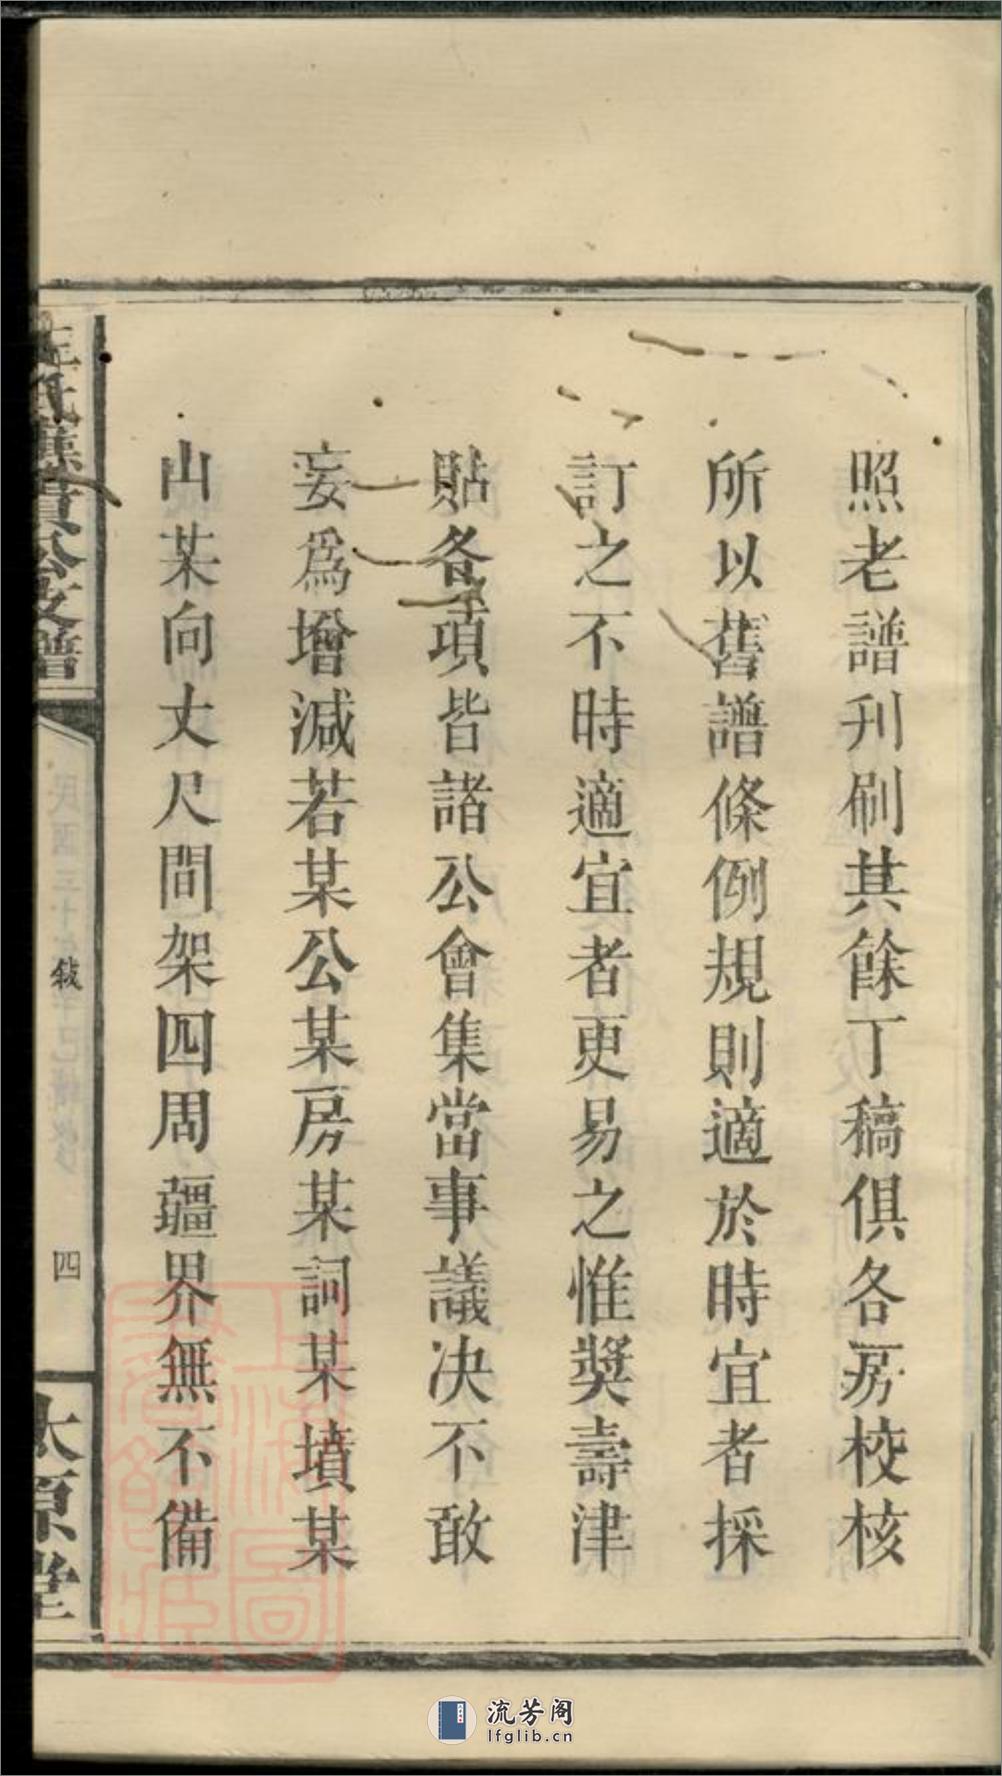 照老譜刋刷其餘丁稿俱各房校核
所以舊譜條例規則適於時宜者採
訂之不時適宜者更易之惟獎壽津
貼各項皆諸公會集當事議决不敢
妄爲增減若某公某房某祠某墳某
山某向丈尺間架四周疆界無不備
公支譜
敍
四
太原堂
流芳阁
lfglib.cn